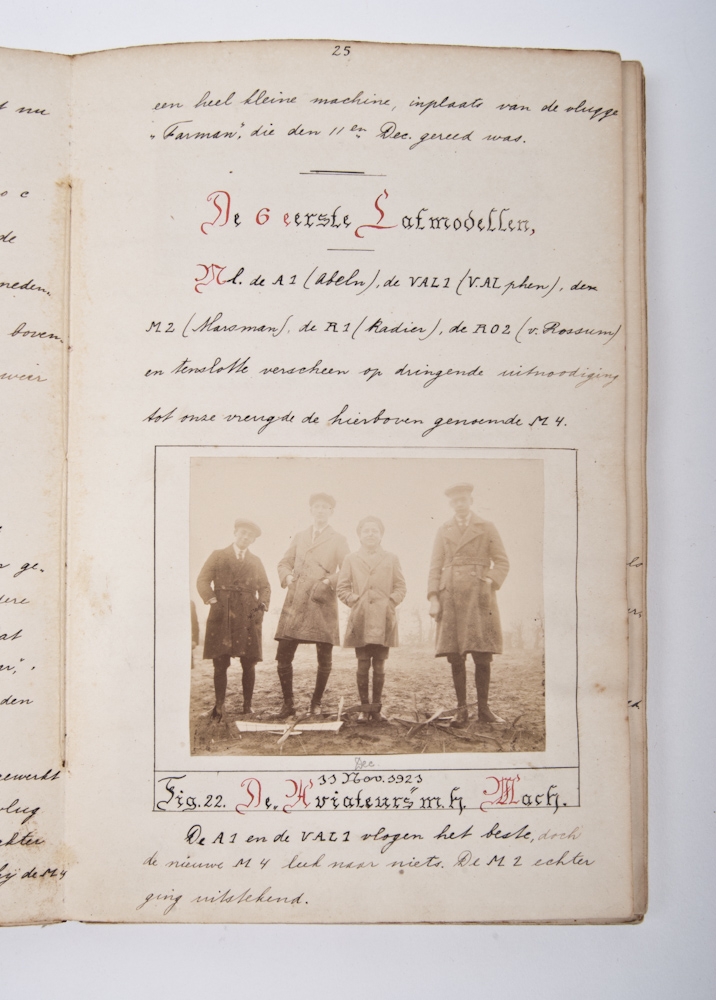 25
een heel kleine machine, inplaats van de vlugge
"Farman", die den 11en Dec. gereed was.
De 6 eerste Latmodellen,
Nl. de A1 (Abeln), de VAL1 (V.ALphen), den
M2 (Marsman), de R1 (Radier), de RO2 (v. Rossum)
en tenslotte verscheen op dringende uitnoodiging
tot onze vreugde de hierboven genoemde M4.
Dec.
11 Nov. 1921
Fig. 22. De "Aviateurs" m.h. Mach.
De A1 en de VAL1 vlogen het beste, doch
de nieuwe M4 leek naar niets. De M2 echter
ging uitstekend.
t nu
o c
de
neden-
boven-
weer
ge-
dere
at
den
gewerkt
vlug
echter
bij de M4